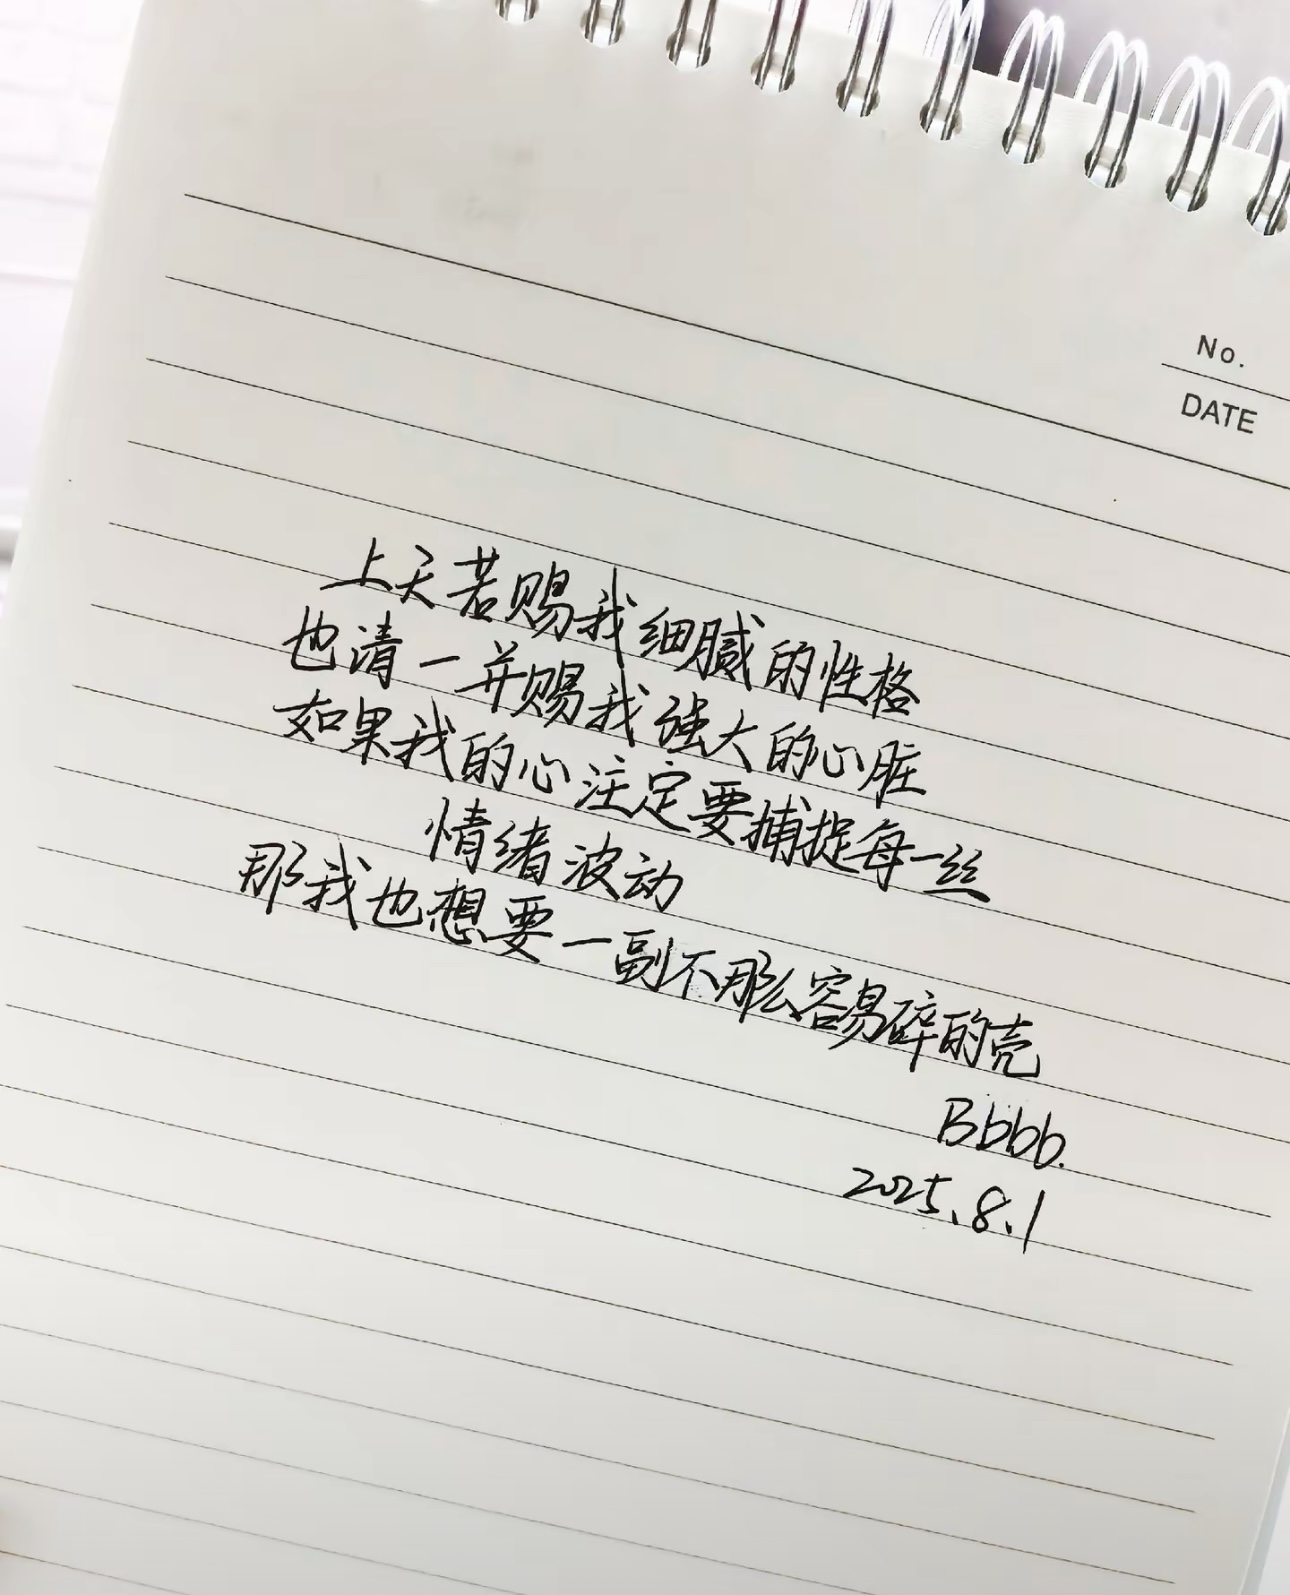 No.
DATE
上天若赐我细腻的性格
也请一并赐我强大的心脏
如果我的心注定要捕捉每一丝
情绪波动
那我也想要一副不那么容易碎的壳
Bbbb.
2025.8.1